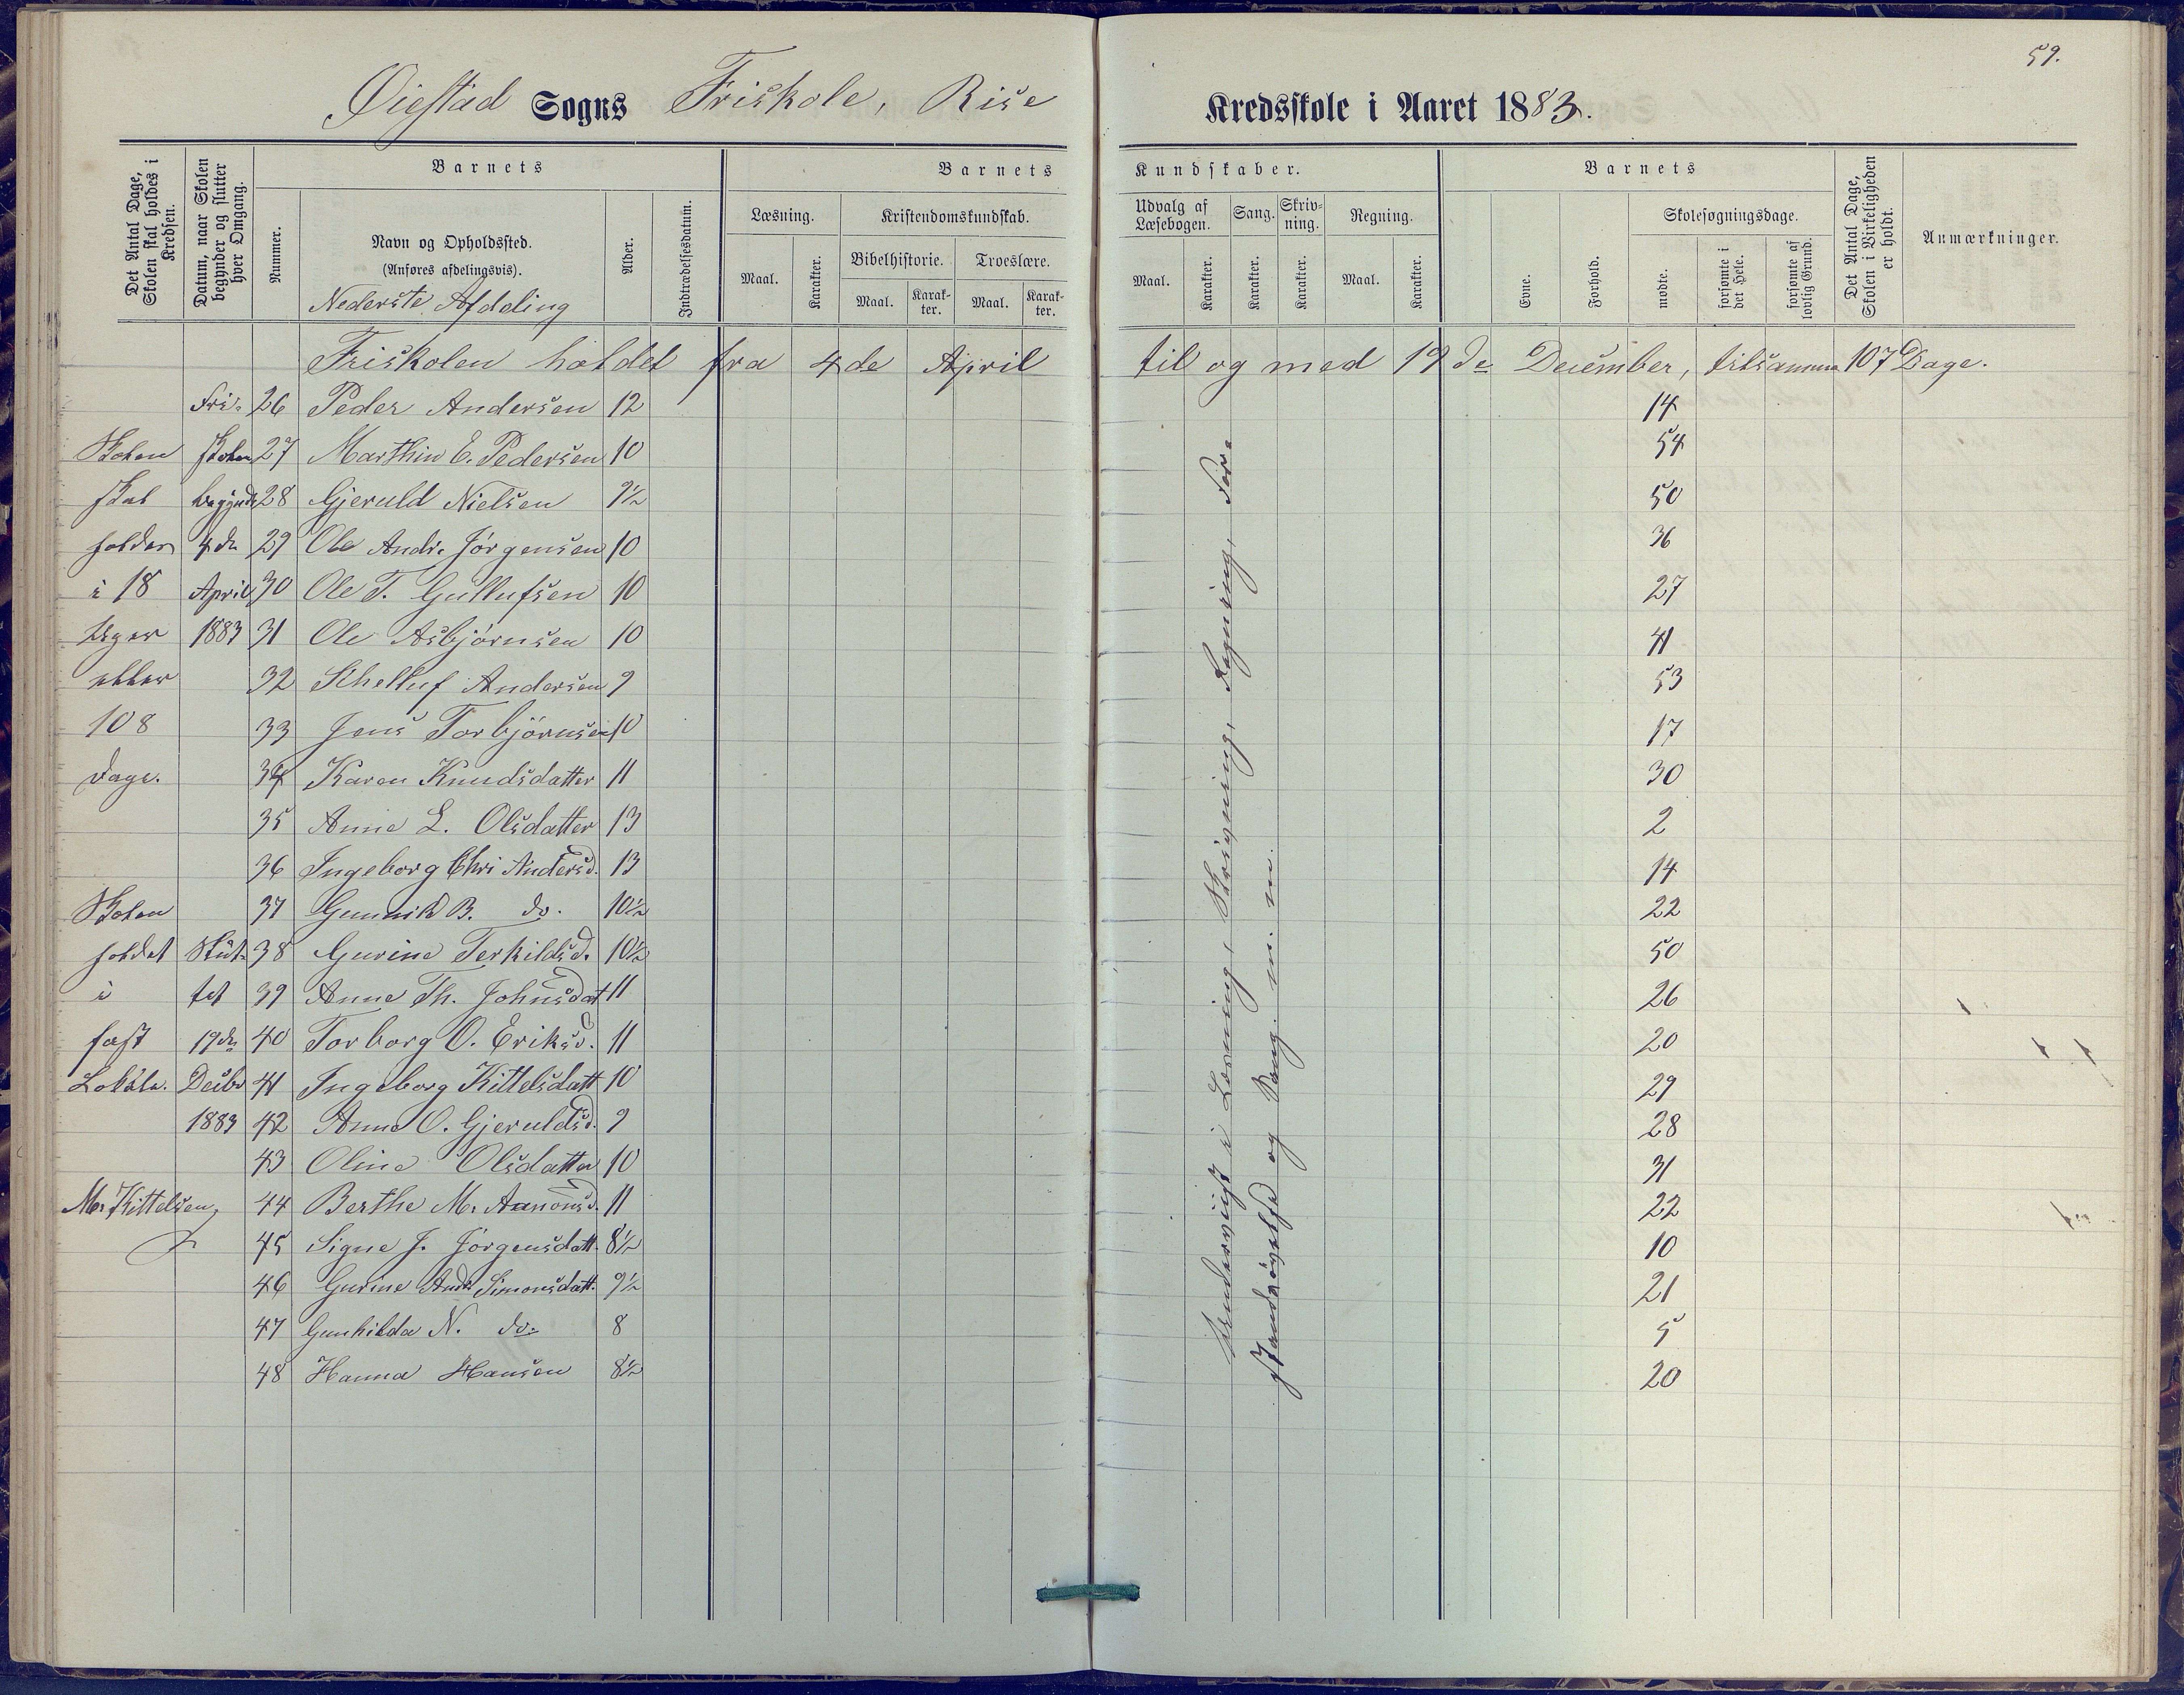 59.
Øiestad Sogns Friskole, Rise Kredsskole i Aaret 1883.
Det Antal Dage, Skolen skal holdes i Kredsen.
Datum, naar Skolen begynder og slutter hver Omgang.
Barnets
Nummer.
Navn og Opholdssted.
(Anføres afdelingsvis).
Nederste Afdeling
Alder.
Indtrædelsesdatum.
Barnets Kundskaber.
Læsning.
Maal.
Karakter.
Kristendomskundskab.
Bibelhistorie.
Maal.
Karakter.
Troeslære.
Maal.
Karakter.
Udvalg af Læsebogen.
Maal.
Karakter.
Sang.
Karakter.
Skrivning.
Karakter.
Regning.
Maal.
Karakter.
Barnets
Evne.
Forhold.
Skolesøgningsdage.
mødte.
forsømte i det Hele.
forsømte af lovlig Grund.
Det Antal Dage, Skolen i Virkeligheden er holdt.
Anmærkninger.
Friskolen holdet fra 4de April til og med 19de December, tilsamm 107 Dage.
Fri- 26 Peder Andersen 12 14
Skolen skolen 27 Marthin E. Pedersen 10 54
skal begyndt 28 Gjeruld Nielsen 9½ 50
holdes 4de 29 Ole Andr. Jörgensen 10 36
i 18 April 30 Ole T. Gullufsen 10 27
Uger 1883 31 Ole Asbjörnsen 10 41
eller 32 Thelluf Andersen 9 53
108 33 Jens Torbjörnsen 10 17
Dage. 34 Karen Knudsdatter 11 30
35 Anne L. Olsdatter 13 2
36 Ingeborg Chri Andersd. 13 14
Skolen 37 Gunnild B. do. 10½ 22
holdet Slut- 38 Gurine Terkildsd. 10½ 50
i tet 39 Anne Th. Johnsdat 11 26
fast 19de 40 Torborg O. Eriksd. 11 20
Lokale. Decbr 41 Ingeborg Kittelsdatt 10 29
1883 42 Anne O. Gjeruldsd. 9 28
43 Oline Olsdatter 10 31
M. Kittelsen, 44 Berthe M. Aanonsd. 11 22
45 Signe J. Jörgensdatt. 8½ 10
46 Gurine Andr. Simonsdatt. 9½ 21
47 Gunhilda N. do. 8 5
48 Hanna Hansen 8½ 20
Undervist i Læsning, Skrivning, Regning, For-
standsövelse og Sang. m. m.